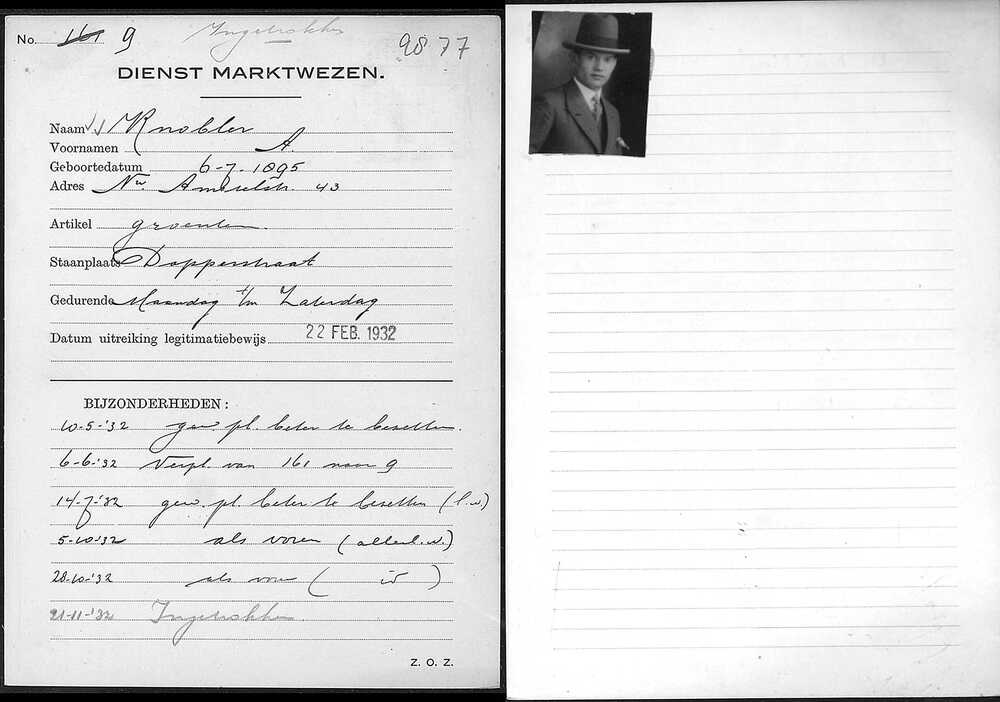 No. 161 9 Ingetrokken 9877
DIENST MARKTWEZEN.
Naam Knobler
Voornamen A.
Geboortedatum 6-7-1895
Adres Nw. Amstelstr. 43
Artikel groenten.
Staanplaats Dapperstraat
Gedurende Maandag t/m Zaterdag
Datum uitreiking legitimatiebewijs 22 FEB. 1932
BIJZONDERHEDEN:
10-5-'32 gew. pl. beter te bezetten.
6-6-'32 Verpl. van 161 naar 9
14-7-'32 gew. pl. beter te bezetten (l.w)
5-10-'32 als voren (allerl.w.)
28-10-'32 als voren ( id )
21-11-'32 Ingetrokken.
Z. O. Z.